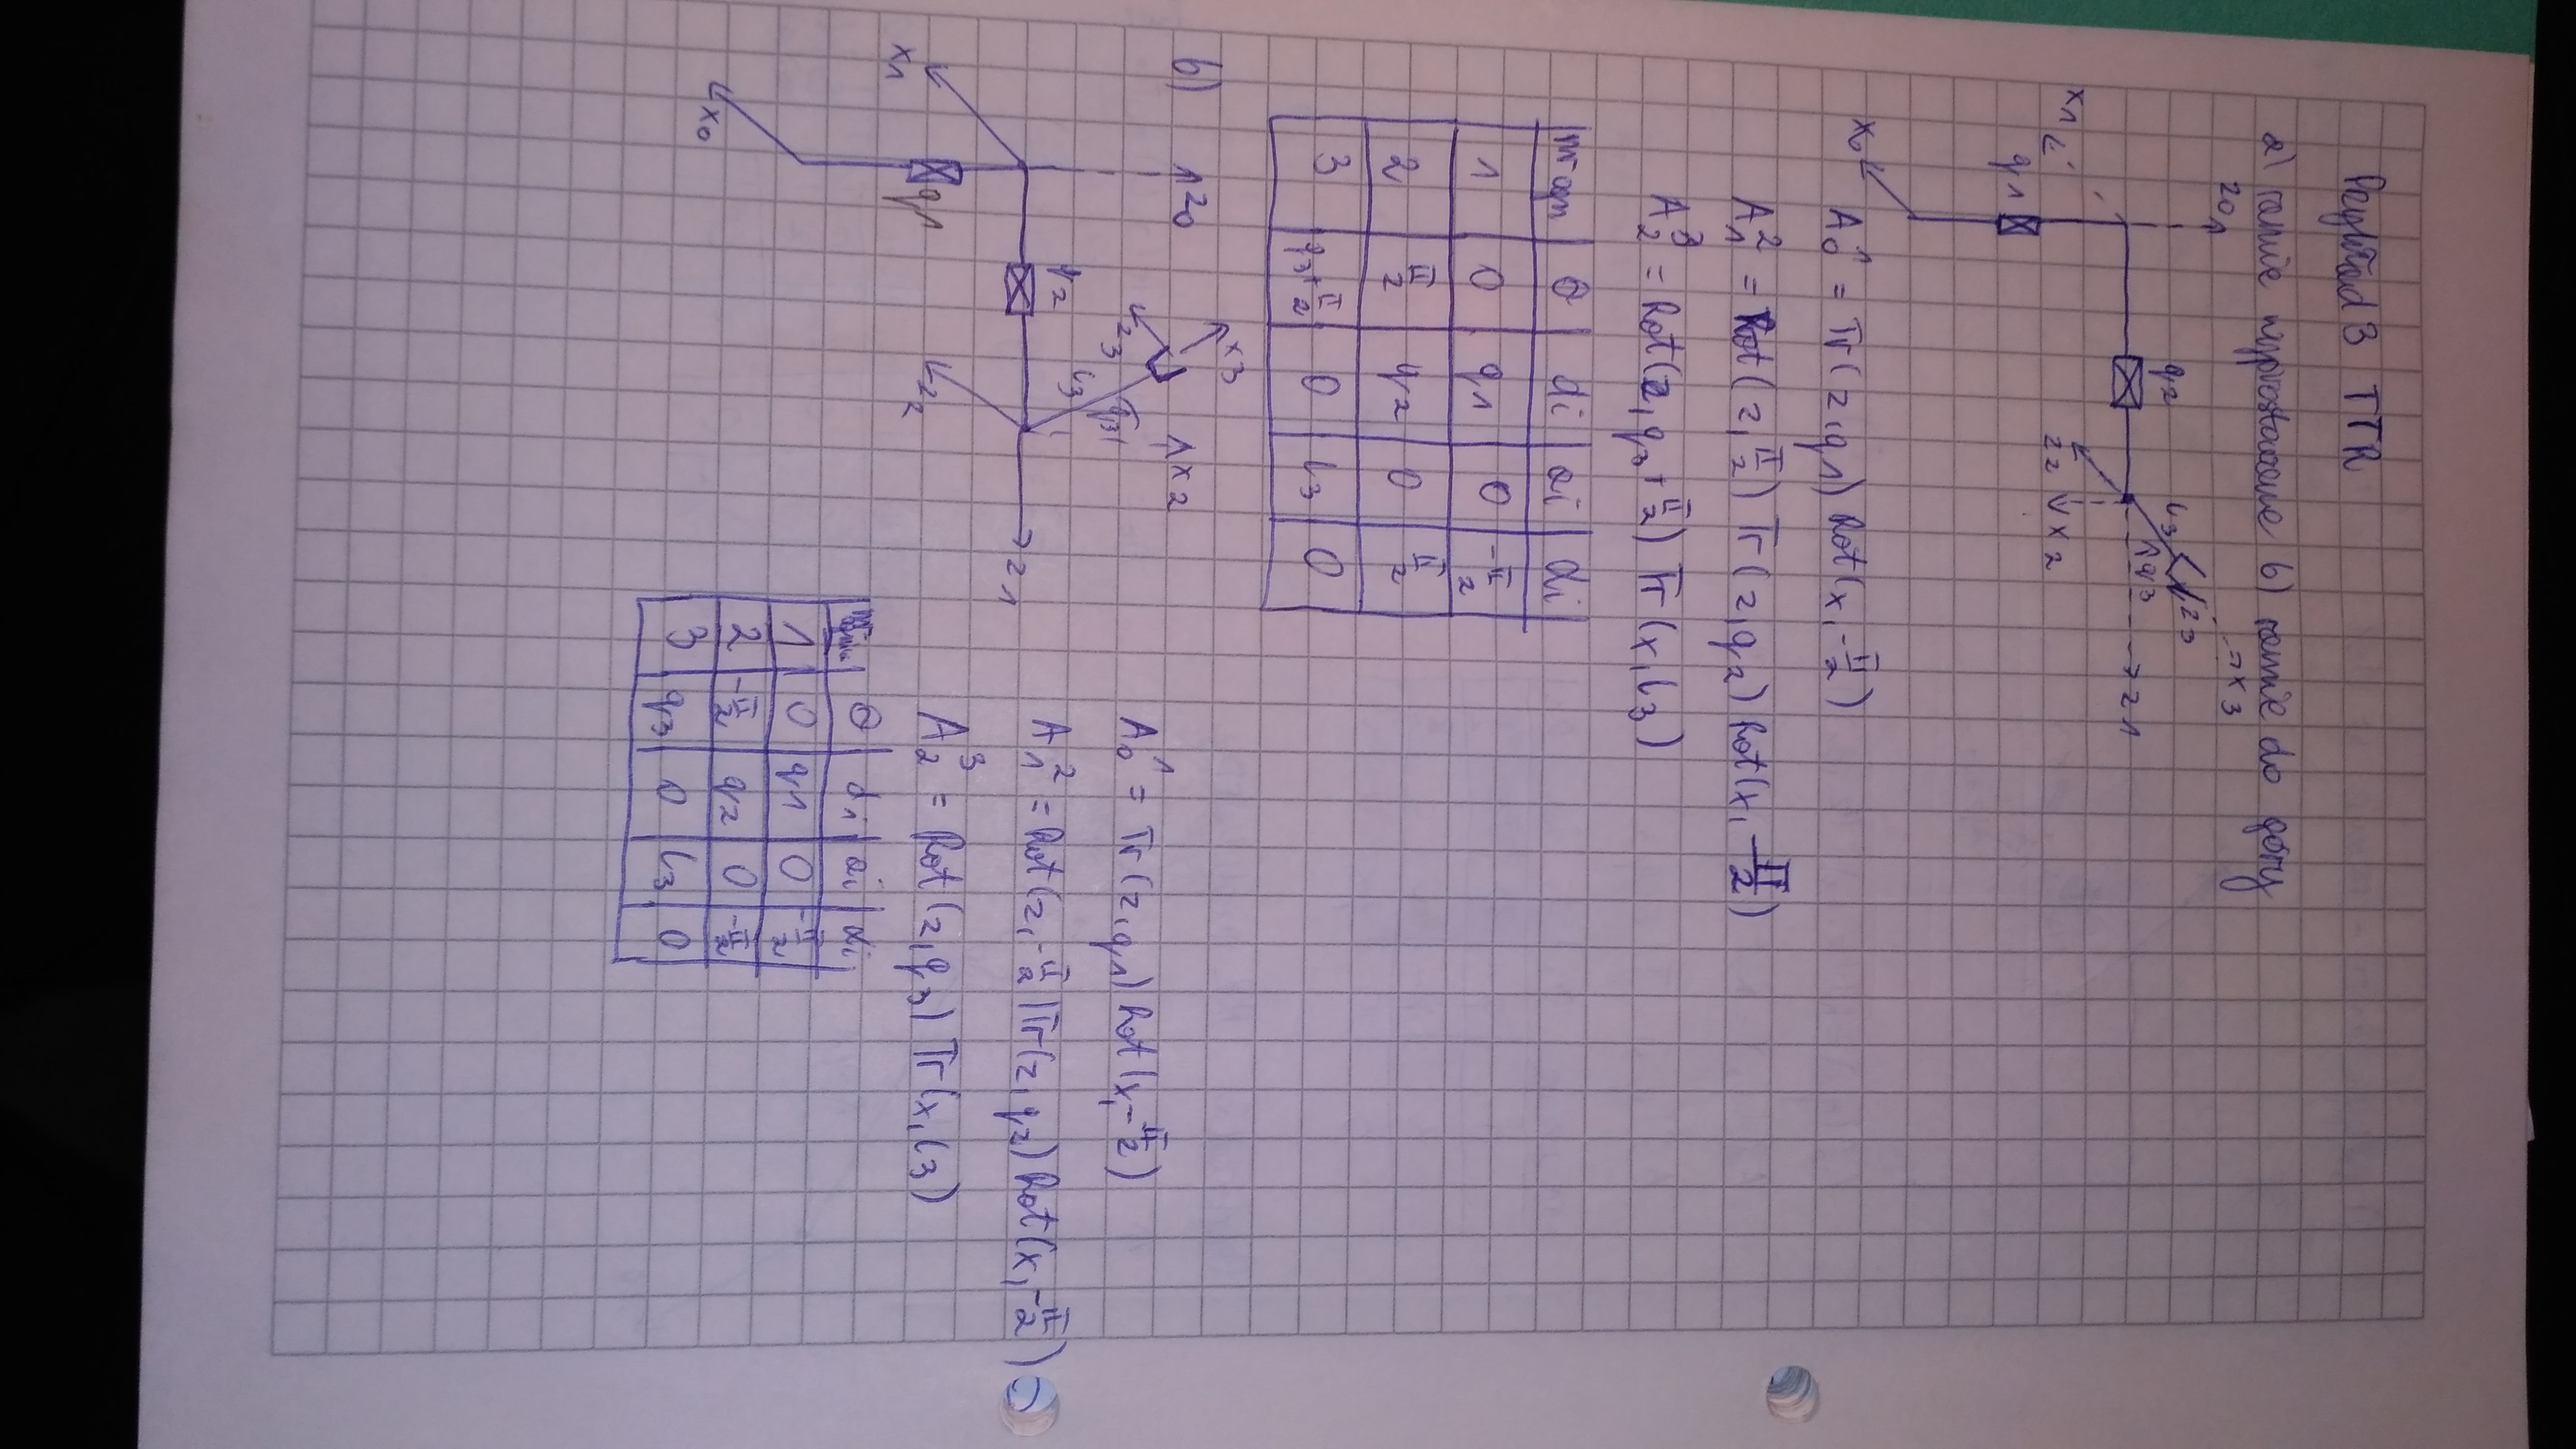 Przykład 3 TTR
a) ramie wyprostowane b) ramie do góry
z0
x3
q2
l3
z3
q3
z1
x1
z2
x2
q1
x0
A₀¹ = Tr(z,q1) Rot(x,-π/2)
A₁² = Rot(z,π/2) Tr(z,q2) Rot(x,-π/2)
A₂³ = Rot(z,q3+π/2) Tr(x,l3)
nr ogn | θ | di | ai | αi
1 | 0 | q1 | 0 | -π/2
2 | π/2 | q2 | 0 | π/2
3 | q3+π/2 | 0 | l3 | 0
b)
z0
x3
x2
z3
q3
l3
q2
z1
x1
q1
z2
x0
A₀¹ = Tr(z,q1) Rot(x,-π/2)
A₁² = Rot(z,-π/2) Tr(z,q2) Rot(x,-π/2)
A₂³ = Rot(z,q3) Tr(x,l3)
θ | di | ai | αi
1 | 0 | q1 | 0 | -π/2
2 | -π/2 | q2 | 0 | -π/2
3 | q3 | 0 | l3 | 0